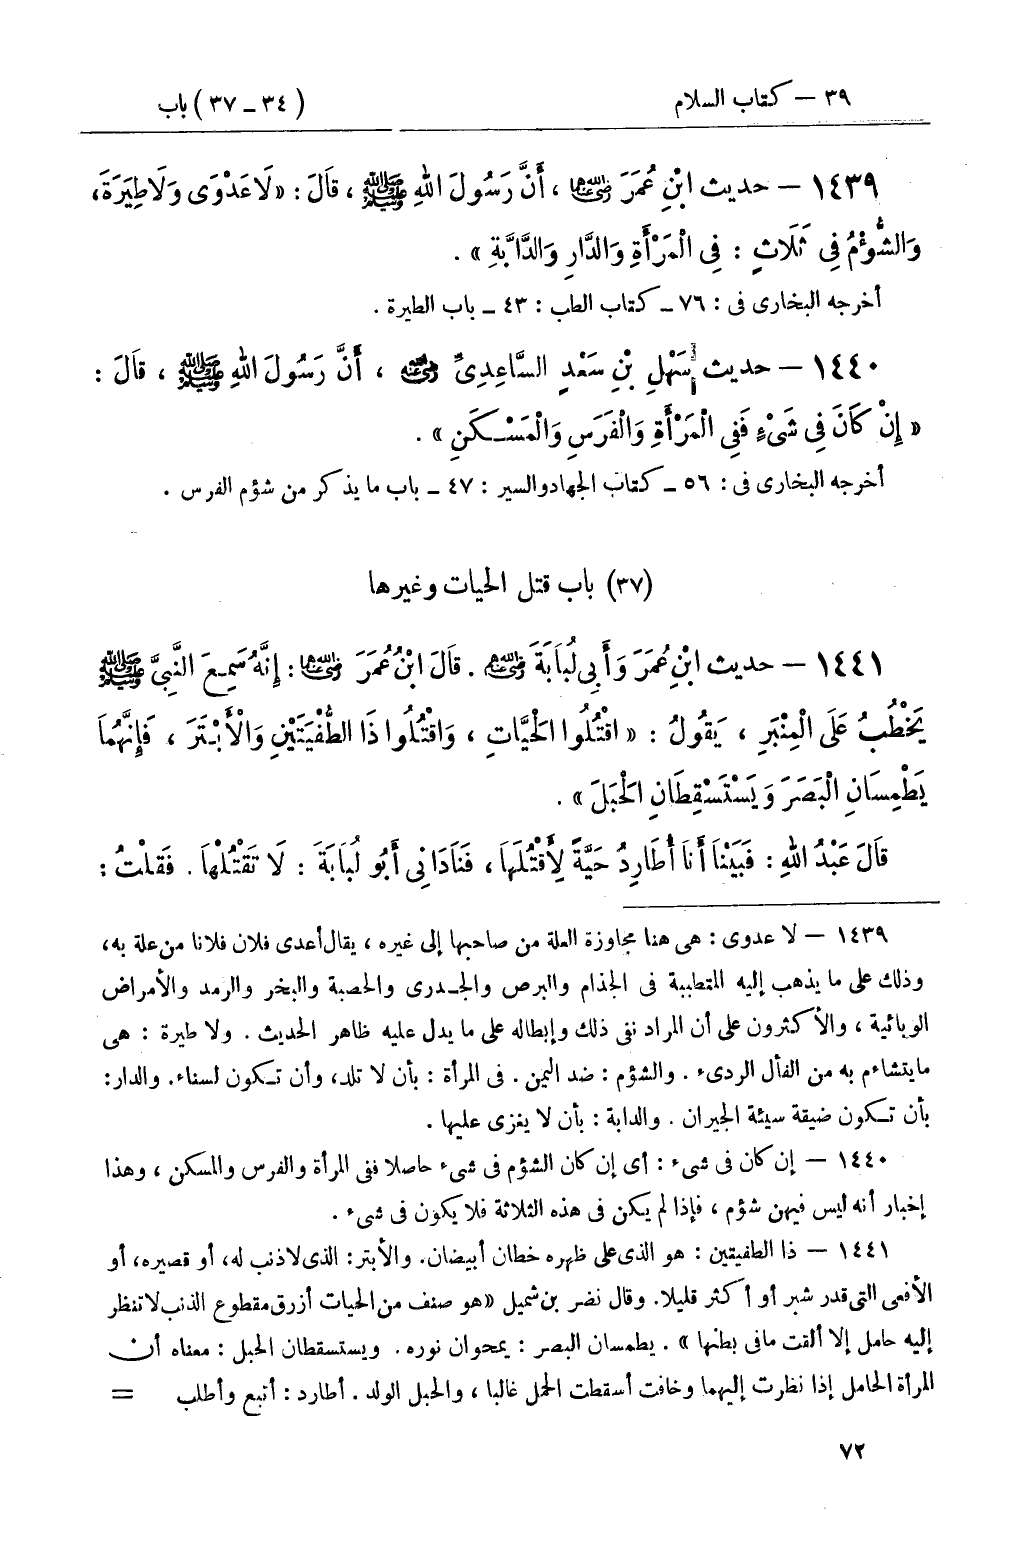 ٣٩ – كتاب السلام
(٣٤ – ٣٧) باب
١٤٣٩ – حديث ابْنِ عُمَرَ رضي الله عنهما ، أَنَّ رَسُولَ اللهِ ﷺ ، قَالَ : « لَا عَدْوَى وَلَا طِيَرَةَ،
وَالشُّؤْمُ فِى ثَلَاثٍ : فِى الْمَرْأَةِ وَالدَّارِ وَالدَّابَّةِ » .
أخرجه البخارى فى : ٧٦ – كتاب الطب : ٤٣ – باب الطيرة .
١٤٤٠ – حديث سَهْلِ بْنِ سَعْدٍ السَّاعِدِىِّ رضي الله عنه ، أَنَّ رَسُولَ اللهِ ﷺ ، قَالَ :
« إِنْ كَانَ فِى شَىْءٍ فَفِى الْمَرْأَةِ وَالْفَرَسِ وَالْمَسْكَنِ » .
أخرجه البخارى فى : ٥٦ – كتاب الجهاد والسير : ٤٧ – باب ما يذكر من شؤم الفرس .
(٣٧) باب قتل الحيات وغيرها
١٤٤١ – حديث ابْنِ عُمَرَ وَأَبِى لُبَابَةَ رضي الله عنهم . قَالَ ابْنُ عُمَرَ رضي الله عنهما : إِنَّهُ سَمِعَ النَّبِىَّ ﷺ
يَخْطُبُ عَلَى الْمِنْبَرِ ، يَقُولُ : « اقْتُلُوا الْحَيَّاتِ ، وَاقْتُلُوا ذَا الطُّفْيَتَيْنِ وَالْأَبْتَرَ ، فَإِنَّهُمَا
يَطْمِسَانِ الْبَصَرَ وَيَسْتَسْقِطَانِ الْحَبَلَ » .
قَالَ عَبْدُ اللهِ : فَبَيْنَا أَنَا أُطَارِدُ حَيَّةً لِأَقْتُلَهَا ، فَنَادَانِى أَبُو لُبَابَةَ : لَا تَقْتُلْهَا . فَقُلْتُ :
١٤٣٩ – لا عدوى : هى هنا مجاوزة العلة من صاحبها إلى غيره ، يقال أعدى فلان فلانا من علة به،
وذلك على ما يذهب إليه المتطببة فى الجذام والبرص والجدرى والحصبة والبخر والرمد والأمراض
الوبائية ، والأكثرون على أن المراد نفى ذلك وإبطاله على ما يدل عليه ظاهر الحديث . ولا طيرة : هى
ما يتشاءم به من الفأل الردىء . والشؤم : ضد اليمن . فى المرأة : بأن لا تلد، وأن تكون لسناء. والدار:
بأن تكون ضيقة سيئة الجيران . والدابة : بأن لا يغزى عليها .
١٤٤٠ – إن كان فى شىء : أى إن كان الشؤم فى شىء حاصلا ففى المرأة والفرس والمسكن ، وهذا
إخبار أنه ليس فيهن شؤم ، فإذا لم يكن فى هذه الثلاثة فلا يكون فى شىء .
١٤٤١ – ذا الطفيتين : هو الذى على ظهره خطان أبيضان. والأبتر: الذى لا ذنب له، أو قصيره، أو
الأفعى التى قدر شبر أو أكثر قليلا. وقال نضر بن شميل «هو صنف من الحيات أزرق مقطوع الذنب لا تنظر
إليه حامل إلا ألقت ما فى بطنها » . يطمسان البصر : يمحوان نوره. ويستسقطان الحبل : معناه أن
المرأة الحامل إذا نظرت إليهما وخافت أسقطت الحمل غالبا ، والحبل الولد . أطارد : أتبع وأطلب =
٧٢